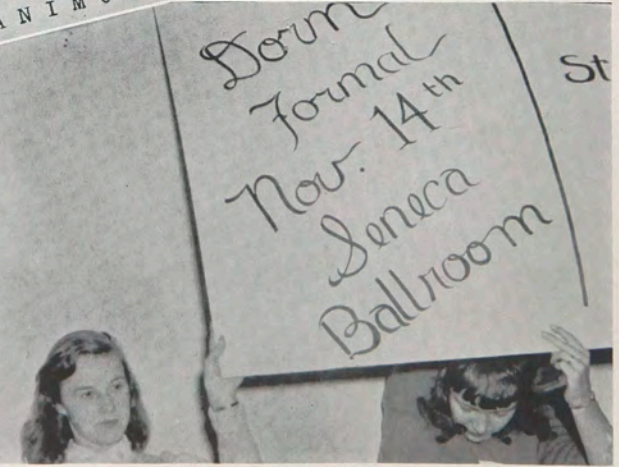 ANIM
Dorm
Formal
Nov. 14th
Seneca
Ballroom
St